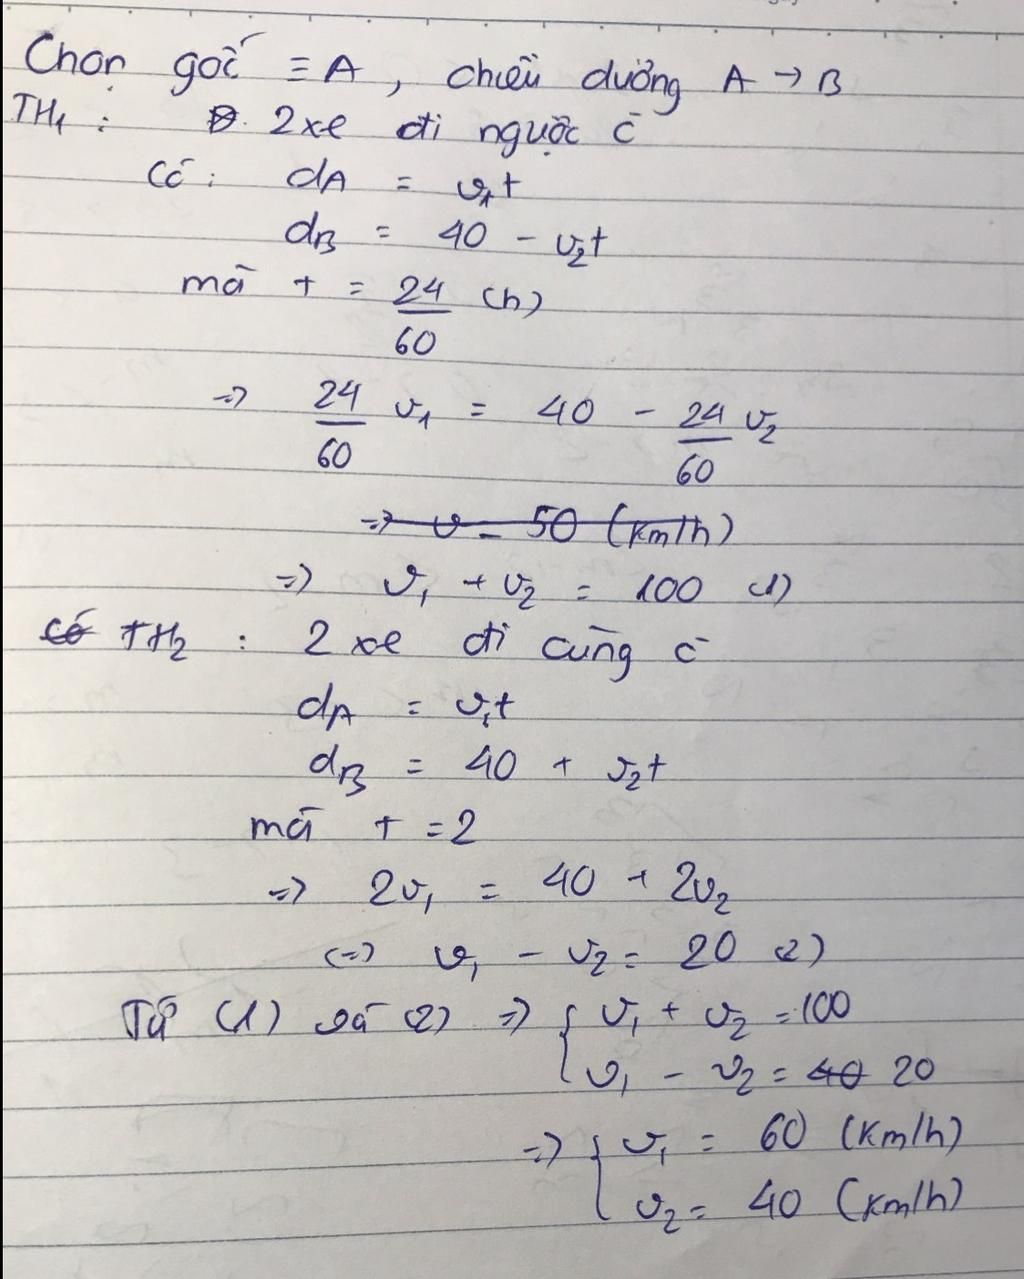 Chọn gốc ≡ A, chiều dương A → B
TH1: 2 xe đi ngược c
Có: dA = v1t
dB = 40 - v2t
mà t = 24/60 (h)
=> 24/60 v1 = 40 - 24/60 v2
=> v = 50 (km/h)
=> v1 + v2 = 100 (1)
có TH2: 2 xe đi cùng c
dA = v1t
dB = 40 + v2t
mà t = 2
=> 2v1 = 40 + 2v2
<=> v1 - v2 = 20 (2)
Từ (1) và (2) => { v1 + v2 = 100
v1 - v2 = 40 20
=> { v1 = 60 (km/h)
v2 = 40 (km/h)